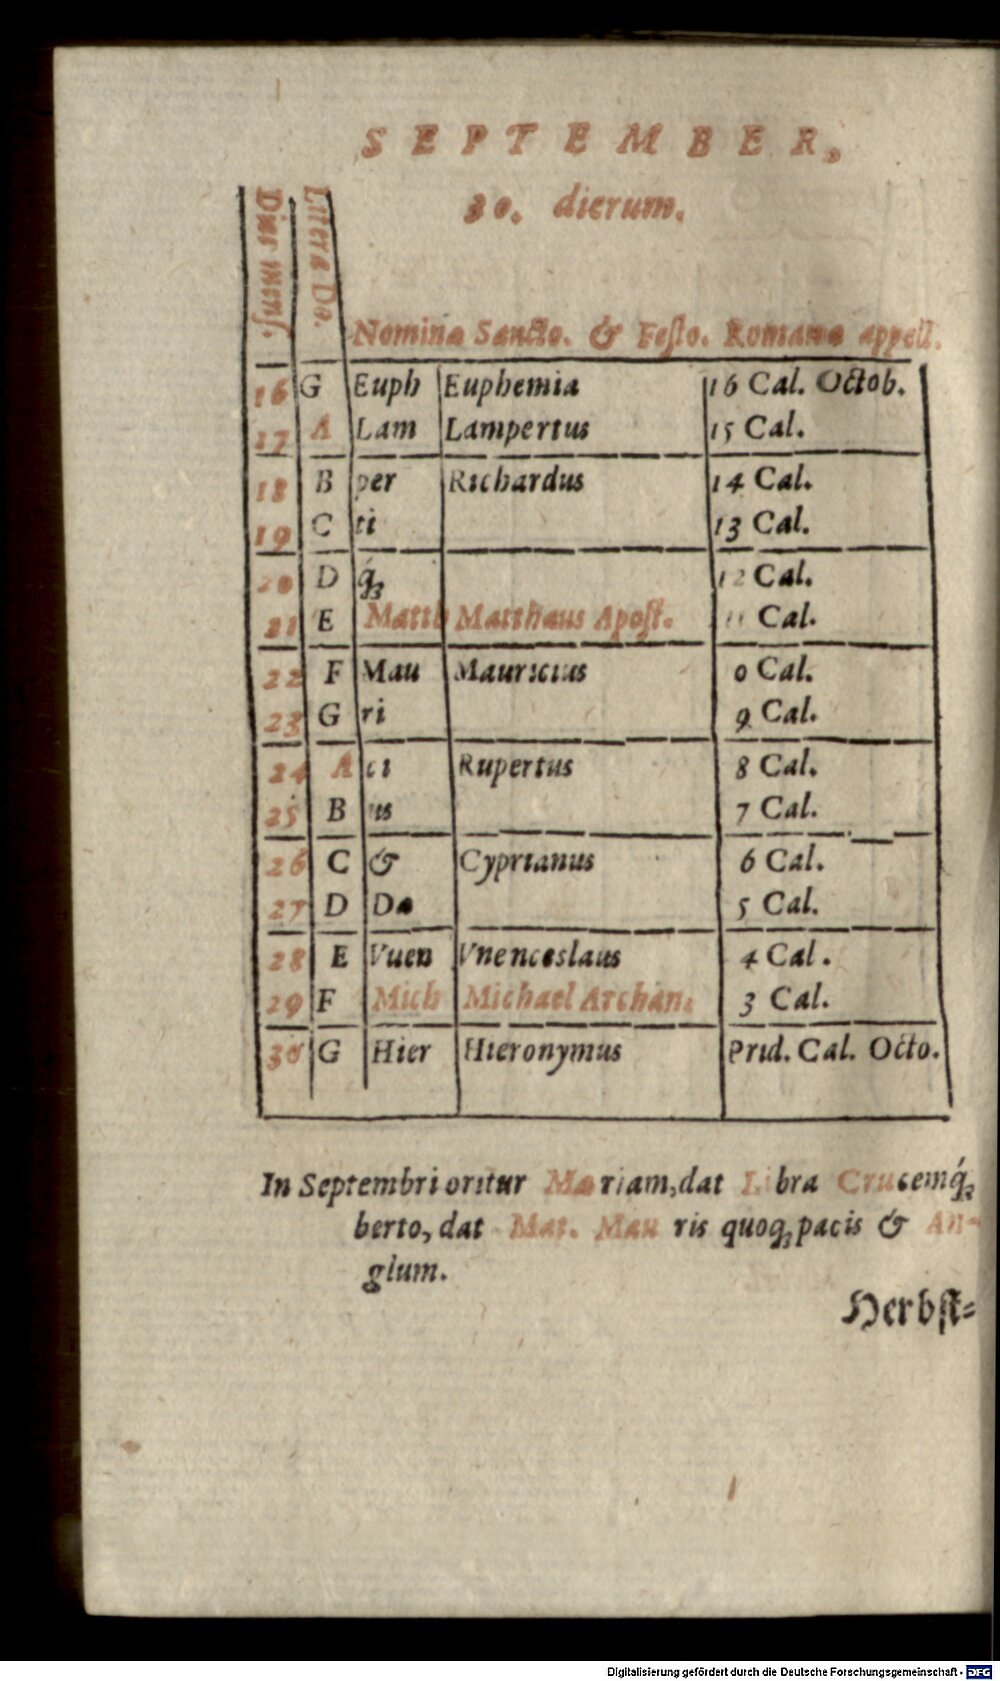 SEPTEMBER,
30. dierum.
Dies mens.
Litteræ Do.
Nomina Sancto. & Festo. Romana appell.
16 G Euph Euphemia 16 Cal. Octob.
17 A Lam Lampertus 15 Cal.
18 B per Richardus 14 Cal.
19 C ti 13 Cal.
20 D q́ꝫ 12 Cal.
21 E Matth Matthæus Apost. 11 Cal.
22 F Mau Mauricius 0 Cal.
23 G ri 9 Cal.
24 A ci Rupertus 8 Cal.
25 B us 7 Cal.
26 C & Cyprianus 6 Cal.
27 D Da 5 Cal.
28 E Vuen Vnenceslaus 4 Cal.
29 F Mich Michael Archan. 3 Cal.
30 G Hier Hieronymus Prid. Cal. Octo.
In Septembri oritur Mariam, dat Libra Crucemq́ꝫ
berto, dat Mat. Mau ris quoqꝫ pacis & An-
glum.
Herbst=
Digitalisierung gefördert durch die Deutsche Forschungsgemeinschaft - DFG